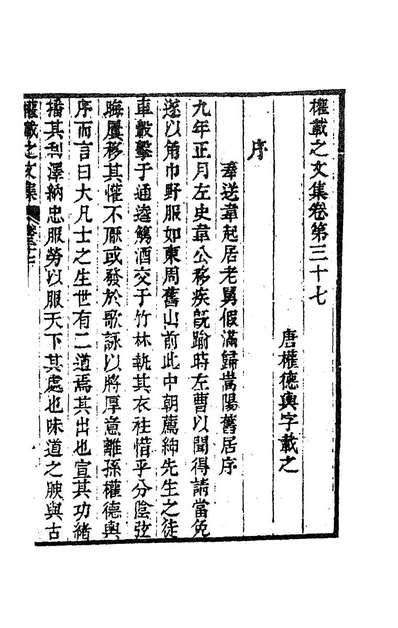 權載之文集卷第三十七
唐權德輿字載之
序
奉送韋起居老舅假滿歸嵩陽舊居序
九年正月左史韋公移疾既踰時左曹以聞得請當免
遂以角巾野服如東周舊山前此中朝薦紳先生之徒
車轂擊于通逵觴酒交于竹林執其衣袪惜乎分陰弦
晦屢移其懽不厭或發於歌詠以將厚意離孫權德輿
序而言曰大凡士之生世有二道焉其出也宣其功緒
播其利澤納忠服勞以服天下其處也味道之腴與古
權載之文集